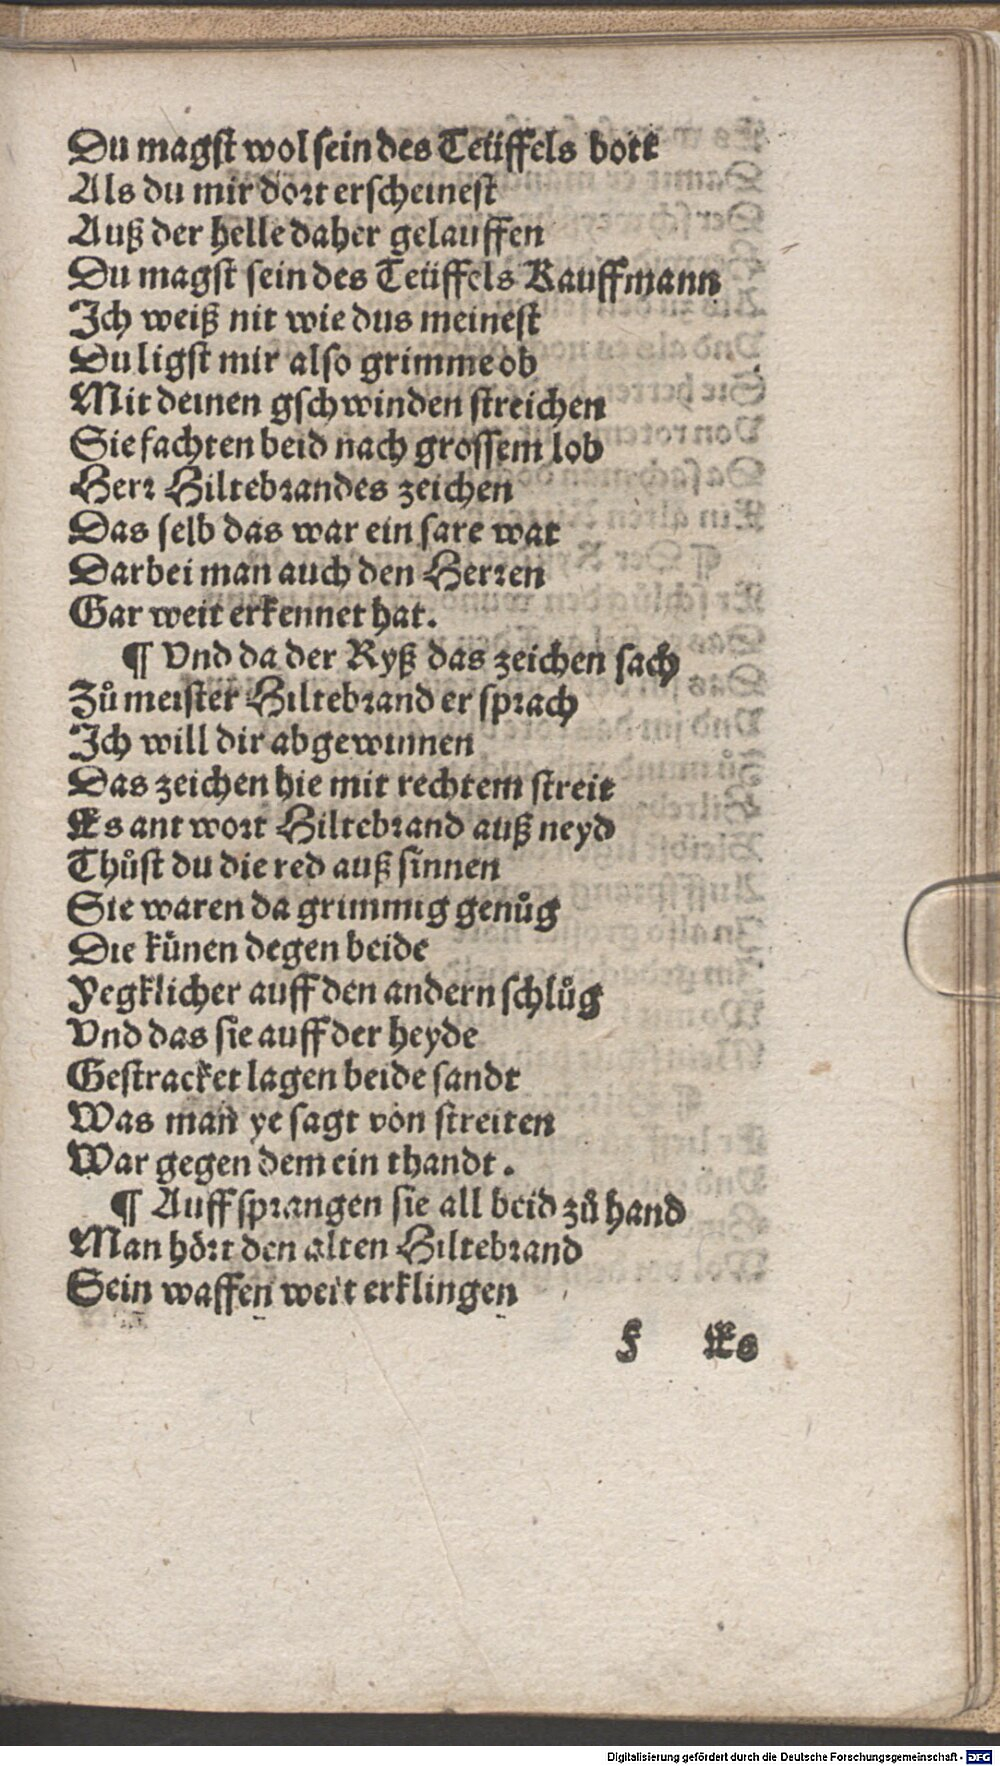 Du magst wol sein des Teüffels bott
Als du mir dort erscheinest
Auß der helle daher gelauffen
Du magst sein des Teüffels Kauffmann
Ich weiß nit wie dus meinest
Du ligst mir also grimme ob
Mit deinen gschwinden streichen
Sie fachten beid nach grossem lob
Herr Hiltebrandes zeichen
Das selb das war ein sare wat
Darbei man auch den Herren
Gar weit erkennet hat.
¶ Vnd da der Ryß das zeichen sach
Zů meister Hiltebrand er sprach
Ich will dir abgewinnen
Das zeichen hie mit rechtem streit
Es antwort Hiltebrand auß neyd
Thůst du die red auß sinnen
Sie waren da grimmig genůg
Die künen degen beide
Yegklicher auff den andern schlůg
Vnd das sie auff der heyde
Gestracket lagen beide sandt
Was man ye sagt von streiten
War gegen dem ein thandt.
¶ Auff sprangen sie all beid zů hand
Man hört den alten Hiltebrand
Sein waffen weit erklingen
F Es
Digitalisierung gefördert durch die Deutsche Forschungsgemeinschaft - DFG